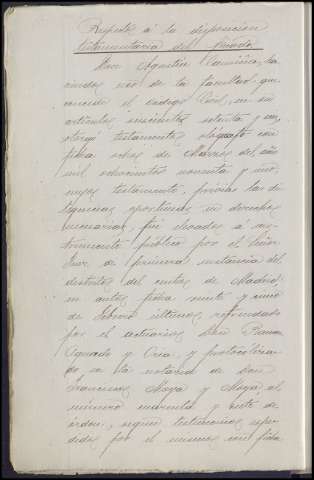 Respecto á la disposicion
testamentaria del finado.
Don Agustin Lamiña, ha-
ciendo uso de la facultad que
concede el codigo Civil, en su
articulo seiscientos setenta y ocho
otorgó testamento ológrafo con
fecha ocho de Marzo del año
mil ochocientos noventa y uno
cuyo testamento, previas las di-
ligencias oportunas en derecho
necesarias, fué elevado á ins-
trumento público por el Señor
Juez de primera instancia del
distrito del Centro de Madrid,
en auto fecha veinte y cinco
de Febrero último, refrendado
por el actuario Don Ramon
Aguado y Oria, y protocoliza-
do en la notaria de Don
Francisco Moya y Moya, al
número cuarenta y siete de
órden, segun testimonio expe-
dido por el mismo con fecha